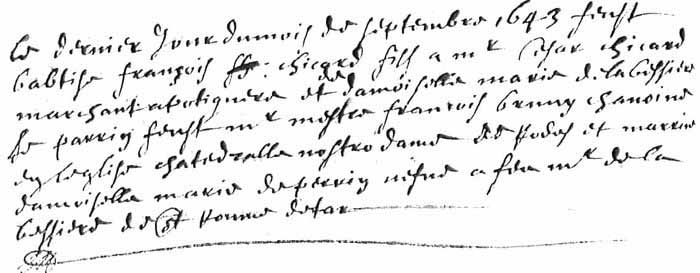 Le dernier Jour du mois de septembre 1643 feust
babtise françois chicard fils a mr chicard
marchant apotiquere et de damoiselle marie de la bessiere
Le parrin feust mr mestre françois bruny chanoine
en leglise chatedralle nostro dame de Rodes et marrine
damoiselle marie de perrin a feu mr de la
bessiere de st Romme de tar